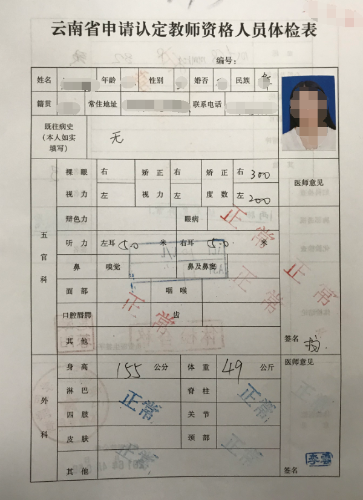 云南省申请认定教师资格人员体检表
编号:
姓名 年龄 性别 婚否 民族
籍贯 常住地址 联系电话
既往病史
(本人如实
填写) 无
裸眼 右 矫正 右 矫正 右 300 医师意见
视力 左 视力 左 度数 左 200
五官科
辩色力 眼病 正常
听力 左耳 5.0 米 右耳 5.0 米
鼻 嗅觉 鼻及鼻窦 正常
面部 咽喉 正常
口腔唇腭 正常 齿 正常
其他 签名
外科
身高 155 公分 体重 49 公斤 医师意见
淋巴 脊柱
四肢 正常 关节 正常
皮肤 颈部
其他 正常 签名